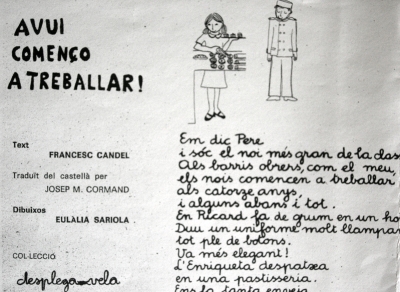 AVUI
COMENÇO
A TREBALLAR!
Text
FRANCESC CANDEL
Traduït del castellà per
JOSEP M. CORMAND
Dibuixos
EULALIA SARIOLA
COL·LECCIÓ
desplega vela
Em dic Pere
i sóc el noi més gran de la clas
Als barris obrers, com el meu,
els nois comencen a treballar
als catorze anys,
i alguns abans i tot.
En Ricard fa de grum en un ho
Duu un uniforme molt llampan
tot ple de botons.
Va més elegant!
L'Enriqueta despatxa
en una pastisseria.
Ens fa tanta enveja